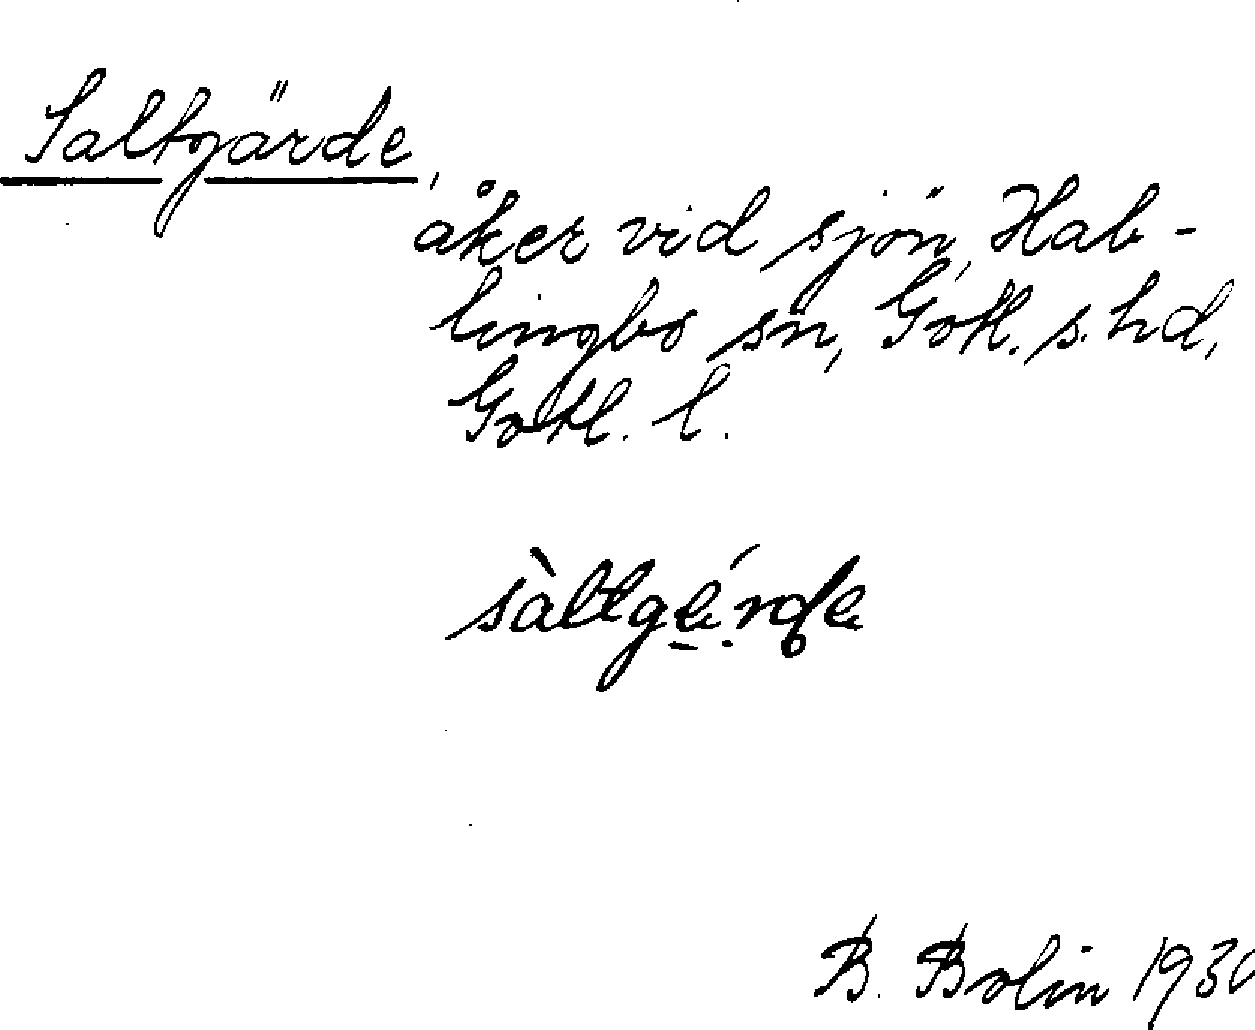 Saltgärde,
åker vid sjön, Hab-
lingbo sn, Gotl. s. hd,
Gotl. l.
sàltgé̱.rde
B. Bolin 1930